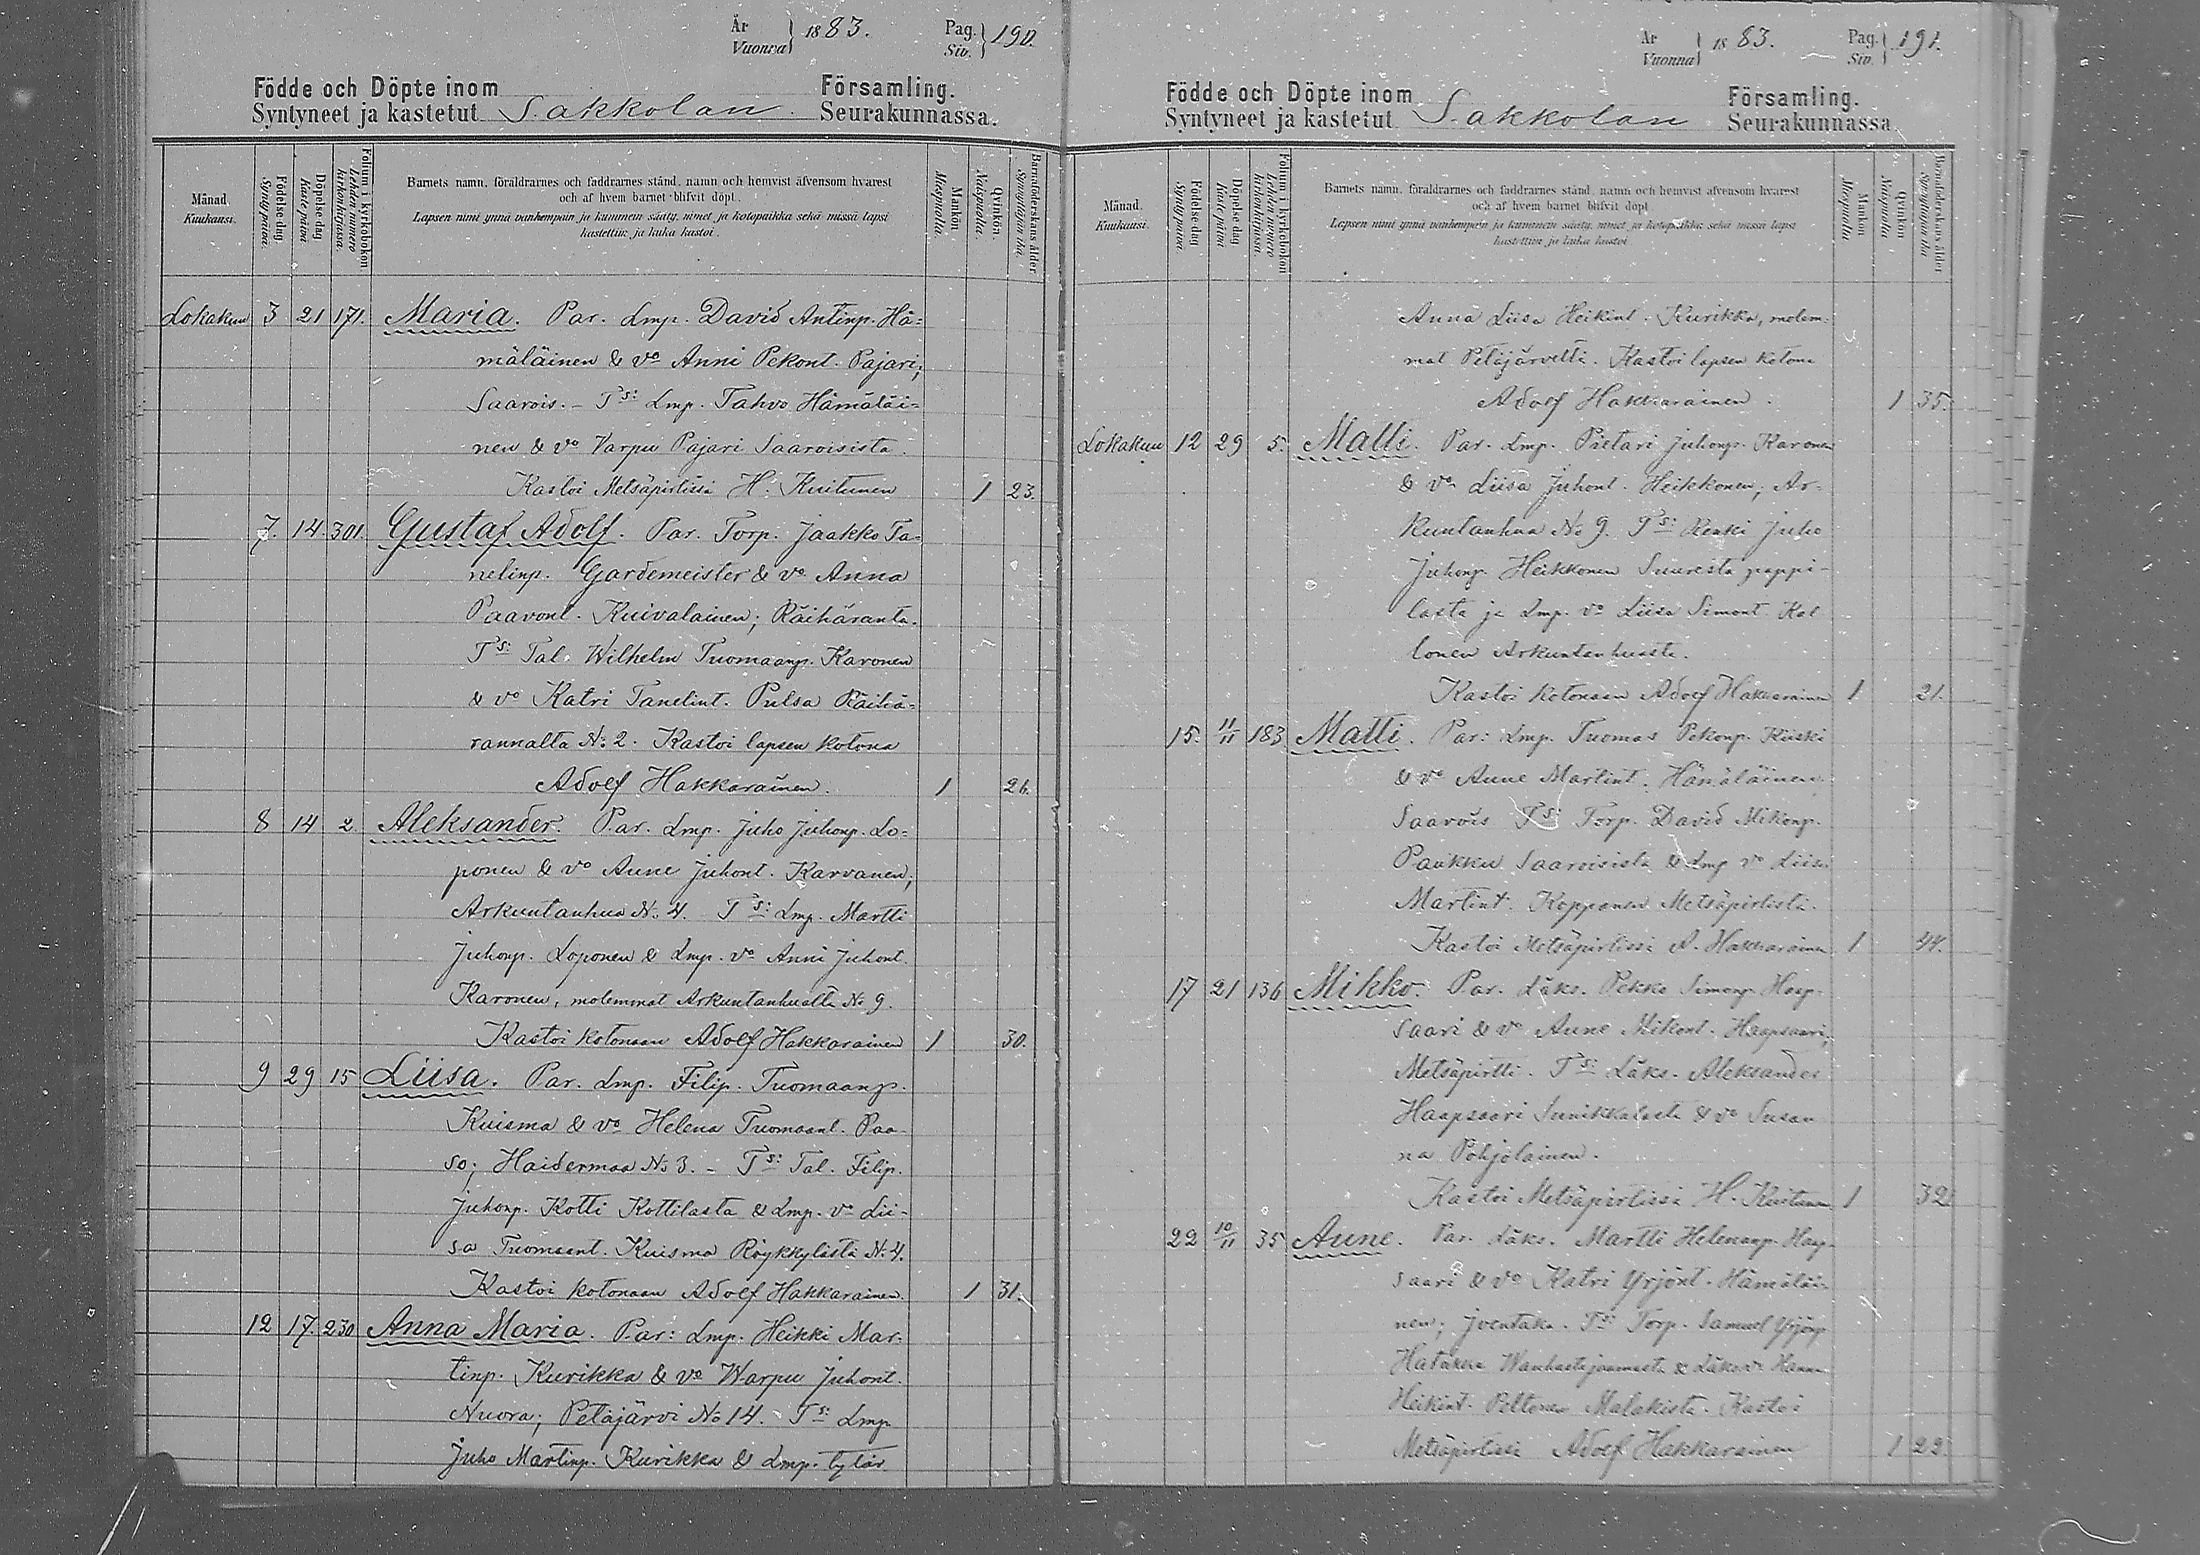 År
Vuonna } 1883. Pag.
Siv. } 190.
Födde och Döpte inom Församling.
Syntyneet ja kastetut Sakkolan Seurakunnassa.
Månad.
Kuukausi.
Födelsedag
Syntypäivä.
Döpelsedag
Kastepäivä
Folium i kyrkoboken
Lehden numero
kirkonkirjassa.
Barnets namn, föräldrarnes och faddrarnes stånd, namn och hemvist äfvensom hvarest
och af hvem barnet blifvit döpt.
Lapsen nimi ynnä vanhempain ja kummein sääty, nimet ja kotopaikka sekä missä lapsi
kastettiin ja kuka kastoi.
Mankön.
Miespuolia.
Qvinkön.
Naispuolia.
Barnaföderskans ålder
Synnyttäjän ikä
Lokakuu 3 21 171. Maria. Par. Lmp. David Antinp. Hä-
mäläinen & vo Anni Pekont. Pajari;
Saarois. - Ts: Lmp. Tahvo Hämäläi-
nen & vo Varpu Pajari Saaroisista.
Kastoi Metsäpirtissä H. Kuitunen 1 23.
7. 14. 301. Gustaf Adolf. Par. Torp. Jaakko Ta-
nelinp. Gardemeister & vo Anna
Paavont. Kuivalainen; Räihäranta.
Ts: Tal. Wilhelm Tuomaanp. Karonen
& vo Katri Tanelint. Pulsa Räihä-
rannalta No: 2. Kastoi lapsen kotona
Adolf Hakkarainen. 1 26.
8 14 2 Aleksander. Par. Lmp. Juho Juhonp. Lo-
ponen & vo Anne Juhont. Karvanen;
Arkuntanhua No. 4. Ts: Lmp. Martti
Juhonp. Loponen & Lmp. vo Anni Juhont.
Karonen, molemmat Arkuntanhualta No 9.
Kastoi kotonaan Adolf Hakkarainen 1 30.
9 29 15 Liisa. Par. Lmp. Filip. Tuomaanp.
Kuisma & vo Helena Tuomaant. Paa-
so; Haidermaa No 3. - Ts: Tal. Filip.
Juhonp. Kotti Kottilasta & Lmp. vo Lii-
sa Tuomaant. Kuisma Röykkylästä No. 4.
Kastoi kotonaan Adolf Hakkarainen. 1 31.
12 17. 230 Anna Maria. Par: Lmp. Heikki Mar-
tinp. Kurikka & vo Warpu Juhont.
Nuora; Petäjärvi No 14. Ts: Lmp
Juho Martinp. Kurikka & Lmp. tytär
År
Vuonna } 1883. Pag.
Siv. } 191.
Födde och Döpte inom Församling.
Syntyneet ja kastetut Sakkolan Seurakunnassa
Månad.
Kuukausi.
Födelsedag
Syntypäivä.
Döpelsedag
Kastepäivä
Folium i kyrkoboken
Lehden numero
kirkonkirjassa.
Barnets namn, föräldrarnes och faddrarnes stånd, namn och hemvist äfvensom hvarest
och af hvem barnet blifvit döpt.
Lapsen nimi ynnä vanhempain ja kummein sääty, nimet ja kotopaikka sekä missä lapsi
kastettiin ja kuka kastoi.
Mankön
Miespuolia
Qvinkön
Naispuolia
Barnaföderskans ålder
Synnyttäjän ikä
Anna Liisa Heikint. Kurikka, molem-
mat Petäjärveltä. Kastoi lapsen kotona
Adolf Hakkarainen. 1 35.
Lokakuu 12 29 5. Matti. Par. Lmp. Pietari Juhonp. Karonen
& vo Liisa Juhont. Heikkonen; Ar-
kuntanhua No 9. Ts: Renki Juho
Juhonp. Heikkonen Suuresta pappi-
lasta ja Lmp. vo Liisa Simont.
lonen Arkuntanhuasta.
Kastoi kotonaan Adolf Hakkarainen 1 21.
15. 11/11 183 Matti. Par: Lmp. Tuomas Pekonp. Kiiski
& vo Anne Martint. Hämäläinen
Saarois Ts: Torp. David Mikonp.
Paukku Saaroisista & Lmp vo Liisa
Martint. Kopponen Metsäpirtistä.
Kastoi Metsäpirtissä A. Hakkarainen 1 44.
17 21 136 Mikko. Par. Läks. Pekka Simonp Haap-
saari & vo Anne Mikont. Haapsaari,
Metsäpirtti. Ts: Läks. Aleksander
Haapsaari Sunikkalasta & vo Susan-
na Pohjolainen.
Kastoi Metsäpirtissä H. Kuitunen 1 32
22 10/11 35 Anne. Par. Läks. Martti Helenanp. Haap-
saari & vo Katri Yrjönt. Hämäläi-
nen; Joentaka. Ts: Torp. Samuel Yrjönp
Hatakka Wanhastajaamasta & Läks. vo
Heikint. Peltonen Malakista. Kastoi
Metsäpirtissä Adolf Hakkarainen 1 22